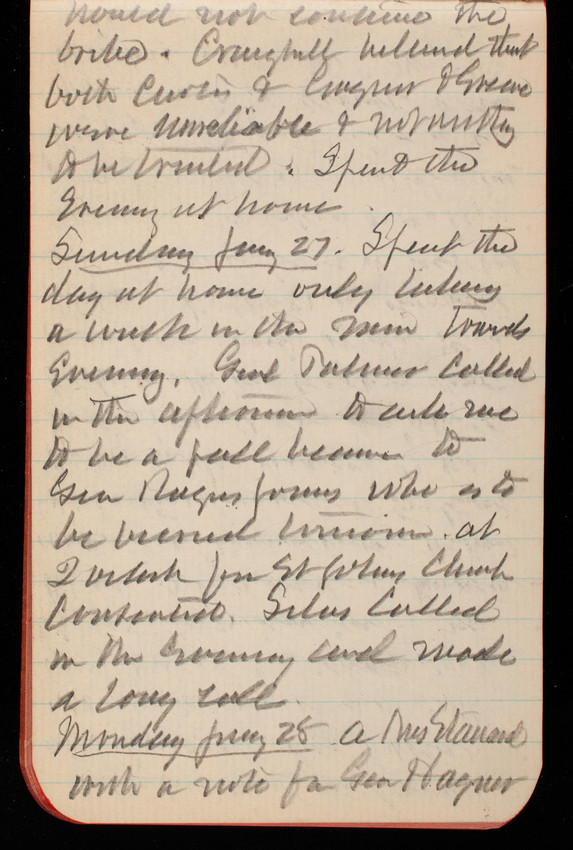 would not continue the
bribe. Craighill believed that
both Curtis & & Greene
were unreliable & not
to be trusted. Spent the
Evening at home.
Sunday Jany 27. Spent the
day at home only taking
a walk in the rain towards
Evening. Genl Palmer called
in the afternoon to ask me
to be a pall bearer to
Gen Roger Jones who is to
be buried tomorrow at
2 oclock from St Johns Church
Silas Called
in the Evening and made
a long call.
Monday Jany 28 a Mrs
with a note fm Gen Hagner